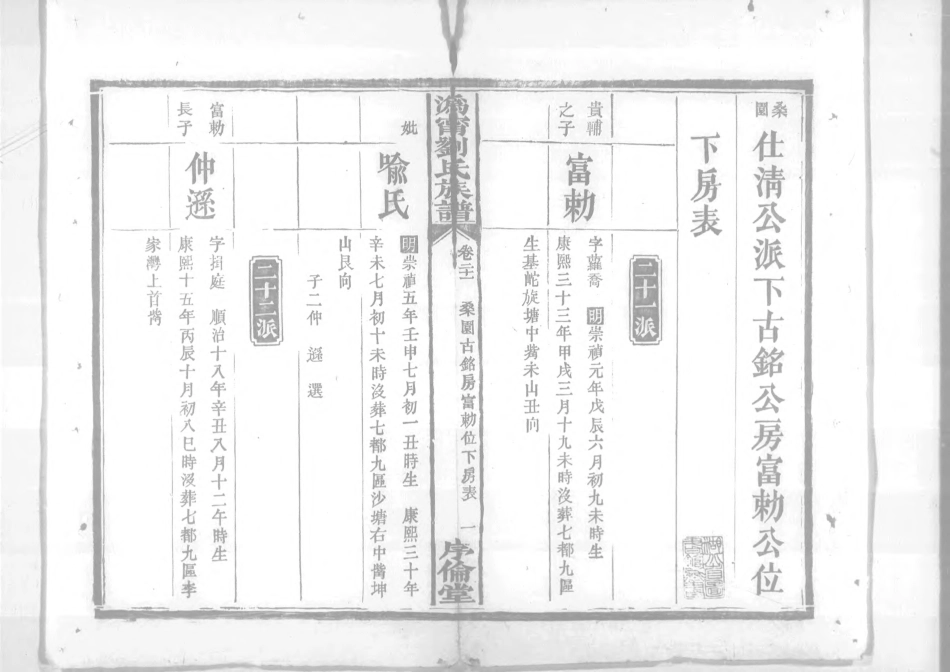 桑園
仕清公派下古銘公房富勅公位
下房表
二十一派
貴補
之子
富勅
字蘿喬 明崇禎元年戊辰六月初九未時生
康熙三十三年甲戌三月十九未時沒葬七都九區
生基䶔旋塘中嘴未山丑向
溈甯劉氏族譜
卷二十一 桑園古銘房富勅位下房表 一
序倫堂
妣
喻氏
明崇禎五年壬申七月初一丑時生 康熙三十年
辛未七月初十未時沒葬七都九區沙塘右中嘴坤
山艮向
子二仲 遜 選
二十二派
富勅
長子
仲遜
字揖庭 順治十八年辛丑八月十二午時生
康熙十五年丙辰十月初八巳時沒葬七都九區李
家灣上首嘴